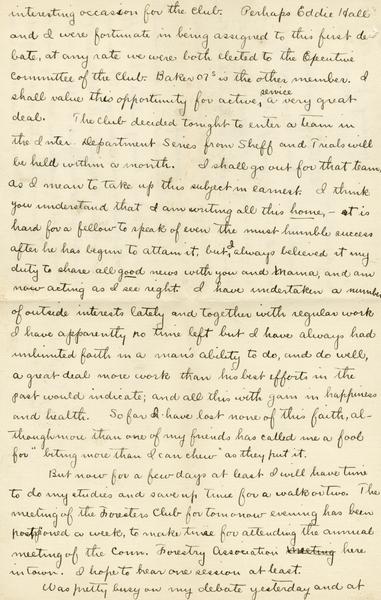 interesting occasion for the club. Perhaps Eddie Hall
and I were fortunate in being assigned to this first de-
bate, at any rate we were both elected to the Executive
Committee of the Club. Baker 07s is the other member. I
shall value this opportunity for active service, a very great
deal. The Club decided tonight to enter a team in
the Inter-Department Series from Sheff and Trials will
be held within a month. I shall go out for that team,
as I mean to take up this subject in earnest. I think
you understand that I am writing all this home, - it is
hard for a fellow to speak of even the most humble success
after he has begun to attain it, but I always believed it my
duty to share all good news with you and Mama, and am
now acting as I see right. I have undertaken a number
of outside interests lately and together with regular work
I have apparently no time left but I have always had
unlimited faith in a man's ability to do, and do well,
a great deal more work than his best efforts in the
past would indicate; and all this with gain in happiness
and health. So far I have lost none of this faith, al-
though more than one of my friends has called me a fool
for "biting more than I can chew" as they put it.
But now for a few days at least I will have time
to do my studies and save up time for a walk or two. The
meeting of the Foresters Club for tomorrow evening has been
postponed a week, to make time for attending the annual
meeting of the Conn. Forestry Association meeting here
in town. I hope to hear one session at least.
Was pretty busy on my debate yesterday and at